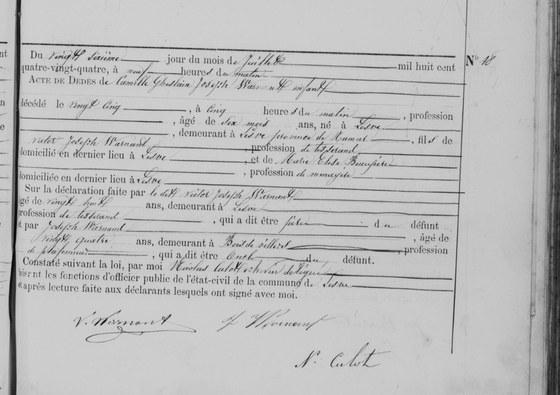 Du vingt sixième jour du mois de Juillet mil huit cent
quatre-vingt-quatre, à neuf heures du matin
ACTE DE DÉCÈS de Camille Ghislain Joseph Warnant enfant
N° 18
décédé le vingt cinq, à cinq heures du matin, profession
, âgé de six mois ans, né à Lesve
, demeurant à Lesve province de Namur, fils de
victor Joseph Warnant profession de tisserand
domicilié en dernier lieu à Lesve, et de Marie Elise
, profession de ménagère
domiciliée en dernier lieu à Lesve
Sur la déclaration faite par le dit victor Joseph Warnant
âgé de vingt huit ans, demeurant à Lesve
profession de tisserand, qui a dit être père du défunt
et par Joseph Warnant, âgé de
vingt quatre ans, demeurant à Bois de villers profession
de, qui a dit être Oncle du défunt.
Constaté suivant la loi, par moi Nicolas Culot échevin délégué
faisant les fonctions d'officier public de l'état-civil de la commune de Lesve
et après lecture faite aux déclarants lesquels ont signé avec moi.
V. Warnant J Warnant
N. Culot